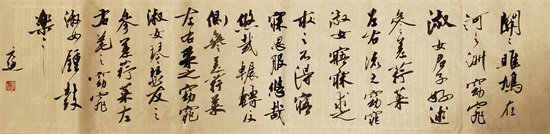 關〻雎鳩在
河之洲窈窕
淑女君子好逑
參差荇菜
左右流之窈窕
淑女寤寐求之
求之不得寤
寐思服悠哉
悠哉輾轉反
側參差荇菜
左右采之窈窕
淑女琴瑟友之
參差荇菜左
右芼之窈窕
淑女鍾鼓
樂之